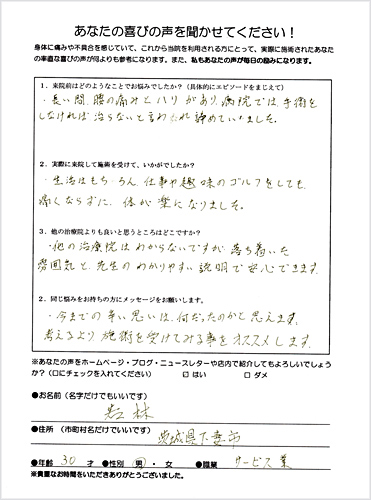 あなたの喜びの声を聞かせてください！
身体に痛みや不具合を感じていて、これから当院を利用される方にとって、実際に施術されたあなた
の率直な喜びの声が何よりも参考になります。また、私もあなたの声が毎日の励みになります。
1．来院前はどのようなことでお悩みでしたか？（具体的にエピソードをまじえて）
・長い間、腰の痛みとハリがあり、病院では、手術を
しなければ治らないと言われ諦めていました。
2．実際に来院して施術を受けて、いかがでしたか？
・生活はもちろん、仕事や趣味のゴルフをしても、
痛くならずに、体が楽になりました。
3．他の治療院よりも良いと思うところはどこですか？
・他の治療院はわからないですが、落ち着いた
雰囲気と、先生のわかりやすい説明で安心できます。
2．同じ悩みをお持ちの方にメッセージをお願いします。
・今までの辛い思いは、何だったのかと思えます。
考えるより、施術を受けてみる事をオススメします。
※あなたの声をホームページ・ブログ・ニュースレターや店内で紹介してもよろしいでしょう
か？（□にチェックを入れてください） ☑ はい □ ダメ
●お名前（名字だけでもいいです）
若林
●住所 （市町村名だけでいいです）
茨城県下妻市
●年齢 30 才 ●性別 男・女 ●職業 サービス業
※貴重なお時間をいただきありがとうございました。